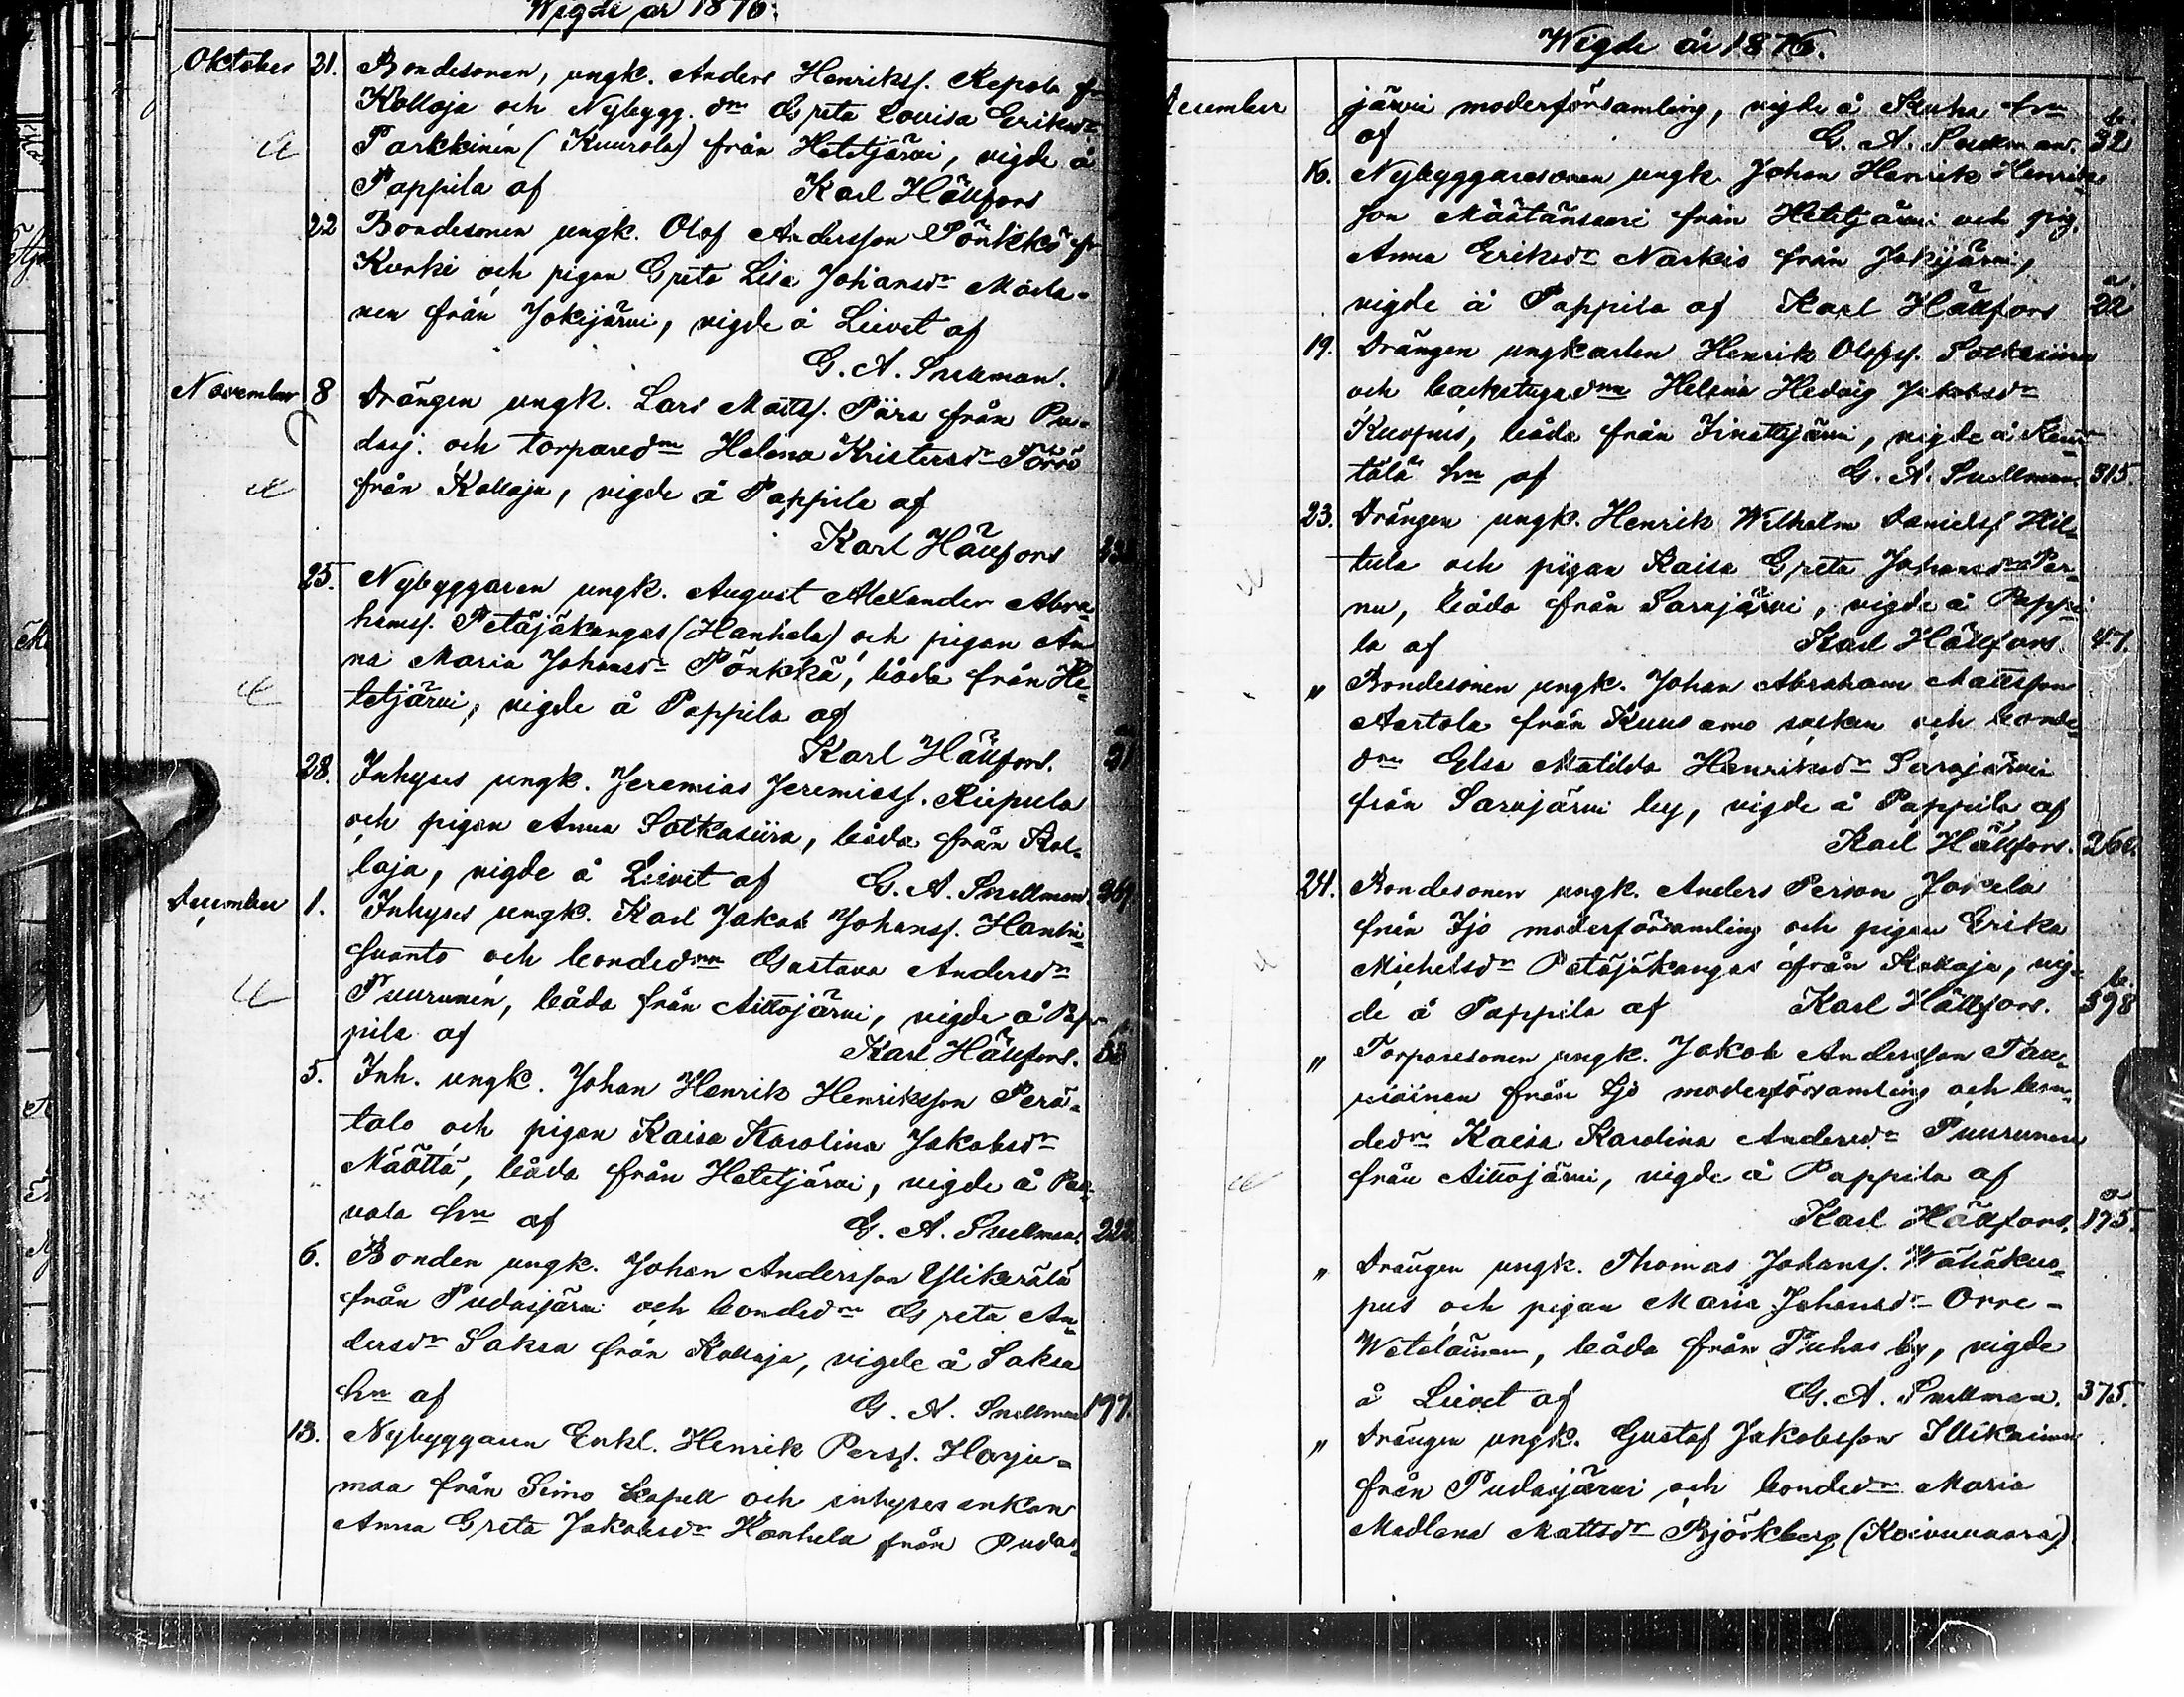 Wigde år 1876.
Oktober 21. Bondesonen, ungk. Anders Henrikss. Repola fr
Kollaja och Nybygg. dn Greta Lovisa Eriksdr
Parkkinen (Kuurola) från Hetetjärvi, vigde å
Pappila af Karl Hällfors
22 Bondesonen ungk. Olof Andersson Pönkkö fr
Kurki och pigan Greta Lisa Johansdr Määtä-
nen från Jokijärvi, vigde å Liivet af
G. A. Snellman.
November 8 Drängen ungk. Lars Matts. Pärä från Pu-
dasj. och torparedn Helena Kristersdr Törrö
från Kollaja, vigde å Pappila af
Karl Hällfors
25. Nybyggaren ungk. August Alexander Abra-
hamss. Petäjäkangas (Hanhela) och pigan An-
na Maria Johansdr Pönkkä, båda från He-
tetjärvi, vigde å Pappila af
Karl Hällfors. 21
28. Inhyses ungk. Jeremias Jeremiass. Riepula
och pigan Anna Sotkasiira, båda från Kol-
laja, vigde å Liivet af G. A. Snellman. 269
December 1. Inhyses ungk. Karl Jakob Johanss. Hanhi-
suanto och bondedn Gustava Andersdr
Puurunen, båda från Aittojärvi, vigde å Pap-
pila af Karl Hällfors.
5. Inh. ungk. Johan Henrik Henriksson Perä-
talo och pigan Kaisa Karolina Jakobsdr
Määttä, båda från Hetetjärvi, vigde å Pa
vola hn af G. A. Snellman. 222
6. Bonden ungk. Johan Andersson Ylikärälä
från Pudasjärvi och bondedn Greta An-
dersdr Saksa från Kollaja, vigde å Saksa
hn af G. A. Snellman 197.
13. Nybyggaren Enkl. Henrik Perss. Harju-
maa från Simo Kapell och inhyses enkan
Anna Greta Jakobsdr Hanhela från Pudas-
Wigde år 1876.
December järvi moderförsamling, vigde å Kuha hn b.
af G. A. Snellman. 32
16. Nybyggaresonen ungk. Johan Henrik Henriks-
son Määtänseeri från Hetetjärvi och pig.
Anna Eriksdr Narkis från Jokijärvi, a.
vigde å Pappila af Karl Hällfors 22
19. Drängen ungkarlen Henrik Olofss. Sotkasiira
och backstugudn Helena Hedvig Jakobsdr
Kuopus, båda från Iinattijärvi, vigde å
tälä hn af G. A. Snellman. 315.
23. Drängen ungk. Henrik Wilhelm Danielss Hil-
tula och pigan Kaisa Greta Johansdr Per-
nu, båda från Sarajärvi, vigde å Pappi-
la af Karl Hällfors. 47.
" Bondesonen ungk. Johan Abraham Mattsson
Aartola från Kuusamo socken och bonde-
dn Elsa Matilda Henriksdr Sarajärvi
från Sarajärvi by, vigde å Pappila af
Karl Hällfors. 262.
24. Bondesonen ungk. Anders Person Jokela
från Ijo moderförsamling och pigan Erika
Michelsdr Petäjäkangas från Kollaja, vig- b.
de å Pappila af Karl Hällfors. 398
" Torparesonen ungk. Jakob Andersson Tau-
riainen från Ijo moderförsamling och bon-
dedn Kaisa Karolina Andersdr Puurunen
från Aittojärvi, vigde å Pappila af a
Karl Hällfors. 175.
" Drängen ungk. Thomas Johanss. Wähäkuo-
pus och pigan Maria Johansdr Orre-
Weteläinen, båda från Puhos by, vigde
å Liivet af G. A. Snellman. 375.
" Drängen ungk. Gustaf Jakobsson Illikainen
från Pudasjärvi och bondedn Maria
Madlena Mattsdr Björkberg (Koivuvaara)